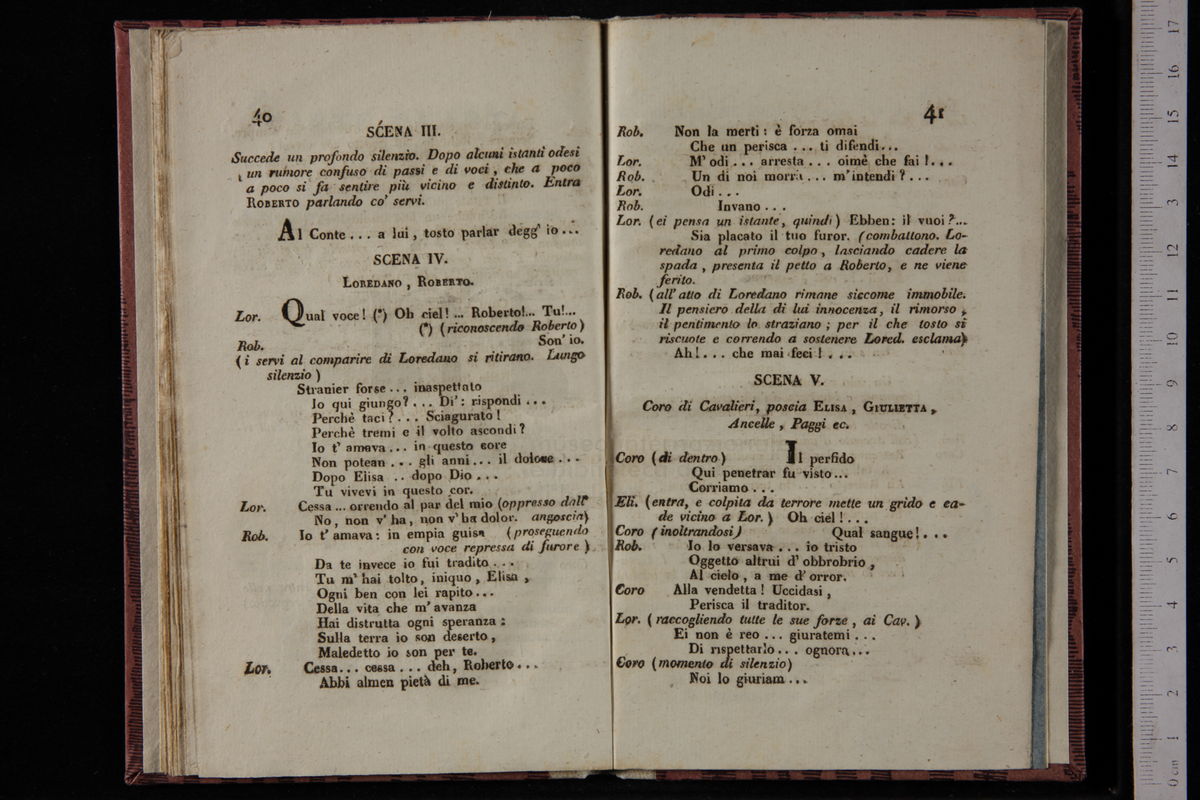 40
SCENA III.
Succede un profondo silenzio. Dopo alcuni istanti odesi
un rumore confuso di passi e di voci, che a poco
a poco si fa sentire più vicino e distinto. Entra
ROBERTO parlando co' servi.
Al Conte . . . a lui, tosto parlar degg' io . . .
SCENA IV.
LOREDANO, ROBERTO.
Lor. Qual voce! (*) Oh ciel! ... Roberto!... Tu!...
(*) (riconoscendo Roberto)
Rob. Son' io.
(i servi al comparire di Loredano si ritirano. Lungo
silenzio)
Stranier forse . . . inaspettato
Io qui giungo? . . . Di': rispondi . . .
Perchè taci? . . . Sciagurato!
Perchè tremi e il volto ascondi?
Io t' amava . . . in questo core
Non potean . . . gli anni . . . il dolore . . .
Dopo Elisa . . dopo Dio . . .
Tu vivevi in questo cor.
Lor. Cessa ... orrendo al par del mio (oppresso dall'
No, non v' ha, non v' ha dolor. angoscia)
Rob. Io t' amava: in empia guisa (proseguendo
con voce repressa di furore)
Da te invece io fui tradito . . .
Tu m' hai tolto, iniquo, Elisa,
Ogni ben con lei rapito . . .
Della vita che m' avanza
Hai distrutta ogni speranza:
Sulla terra io son deserto,
Maledetto io son per te.
Lor. Cessa . . . cessa . . . deh, Roberto . . .
Abbi almen pietà di me.
41
Rob. Non la merti: è forza omai
Che un perisca . . . ti difendi . . .
Lor. M' odi . . . arresta . . . oimè che fai! . . .
Rob. Un di noi morrà . . . m' intendi? . . .
Lor. Odi . . .
Rob. Invano . . .
Lor. (ei pensa un istante, quindi) Ebben: il vuoi?...
Sia placato il tuo furor. (combattono. Lo-
redano al primo colpo, lasciando cadere la
spada, presenta il petto a Roberto, e ne viene
ferito.
Rob. (all' atto di Loredano rimane siccome immobile.
Il pensiero della di lui innocenza, il rimorso,
il pentimento lo straziano; per il che tosto si
riscuote e correndo a sostenere Lored. esclama)
Ah! . . . che mai feci! . . .
SCENA V.
Coro di Cavalieri, poscia ELISA, GIULIETTA,
Ancelle, Paggi ec.
Coro (di dentro) Il perfido
Qui penetrar fu visto . . .
Corriamo . . .
Eli. (entra, e colpita da terrore mette un grido e ca-
de vicino a Lor.) Oh ciel! . . .
Coro (inoltrandosi) Qual sangue! . . .
Rob. Io lo versava . . . io tristo
Oggetto altrui d' obbrobrio,
Al cielo, a me d' orror.
Coro Alla vendetta! Uccidasi,
Perisca il traditor.
Lor. (raccogliendo tutte le sue forze, ai Cav.)
Ei non è reo . . . giuratemi . . .
Di rispettarlo . . . ognora . . .
Coro (momento di silenzio)
Noi lo giuriam . . .
17
16
15
14
13
12
11
10
9
8
7
6
5
4
3
2
1
0 cm